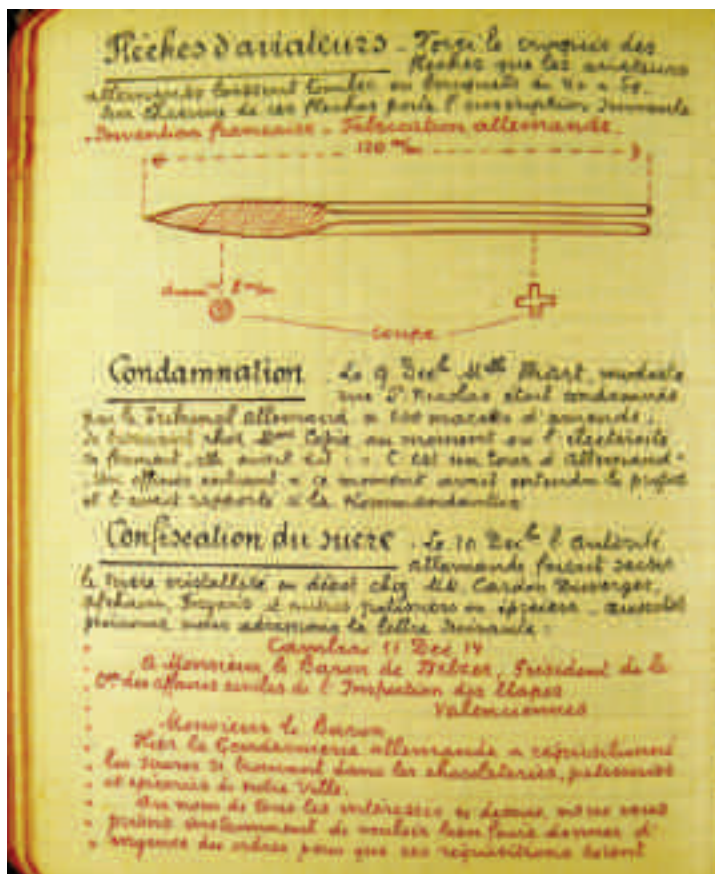 Flèches d'aviateurs - Voici le croquis des
flèches que les aviateurs
allemands laissent tomber en bouquets de 40 à 50.
Sur chacune de ces flèches porte l'inscription suivante
Invention française - Fabrication allemande.
120 m/m
8 m/m
coupe
Condamnation. Le 9 Dec Mlle modiste
rue St Nicolas était condamnée
par le Tribunal Allemand à 100 marcks d'amende.
Se trouvant chez Mme au moment où l'électricité
elle avait dit : « C'est un tour d'Allemand »
Un officier entrant à ce moment avait entendu le propos
et l'avait rapporté à la Kommandantur
Confiscation du sucre. Le 10 Dec l'autorité
allemande faisait saisir
le sucre cristallisé en dépôt chez MM. Cardon Duverger,
et autres patissiers ou épiciers. Aussitôt
nous adressions la lettre suivante :
Cambrai 11 Dec 14
A Monsieur le Baron de Président de la
des affaires civiles de l'Inspection des Etapes
Valenciennes
Monsieur le Baron
Hier la Gendarmerie allemande a réquisitionné
les sucres se trouvant dans les chocolateries, patisseries
et épiceries de notre Ville.
Au nom de tous les intéressés nous vous
prions instamment de vouloir bien faire donner d'
urgence des ordres pour que ces réquisitions soient